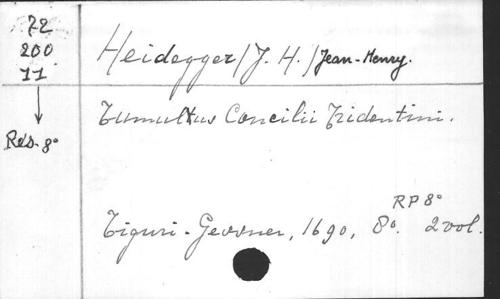 72
200
11
Heidegger / J. H. / Jean-Henry.
Tumultus Concilii Tridentini.
Rés. 8°
RP 8°
Tiguri - Gessner, 1690, 8o. 2 vol.